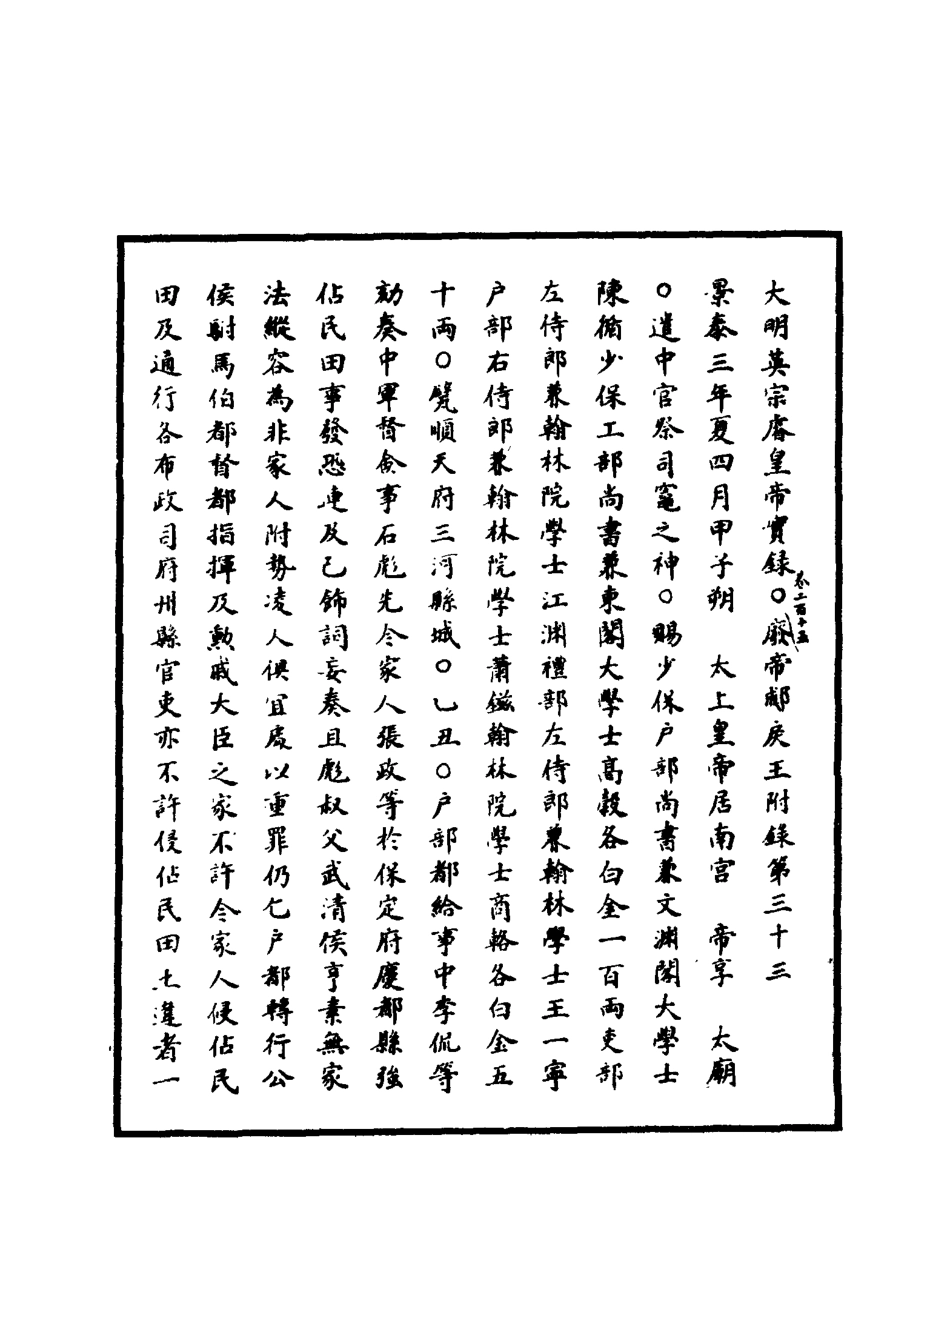 大明英宗睿皇帝實録〇廢帝郕戾王附録第三十三
卷二百十五
景泰三年夏四月甲子朔　太上皇帝居南宫　帝享　太廟
〇遣中官祭司竈之神〇賜少保户部尚書兼文渊閣大學士
陳循少保工部尚書兼東閣大學士髙穀各白金一百兩吏部
左侍郎兼翰林院學士江渊禮部左侍郎兼翰林學士王一寧
户部右侍郎兼翰林院學士蕭鎡翰林院學士商輅各白金五
十兩〇甃順天府三河縣城〇乙丑〇户部都給事中李侃等
劾奏中軍督僉事石彪先令家人張政等於保定府慶都縣強
佔民田事發恐連及己飾詞妄奏且彪叔父武清侯亨素無家
法縱容為非家人附勢凌人俱宜䖏以重罪仍乞户部轉行公
侯駙馬伯都督都指揮及勲戚大臣之家不許令家人侵佔民
田及通行各布政司府州縣官吏亦不許侵佔民田土違者一